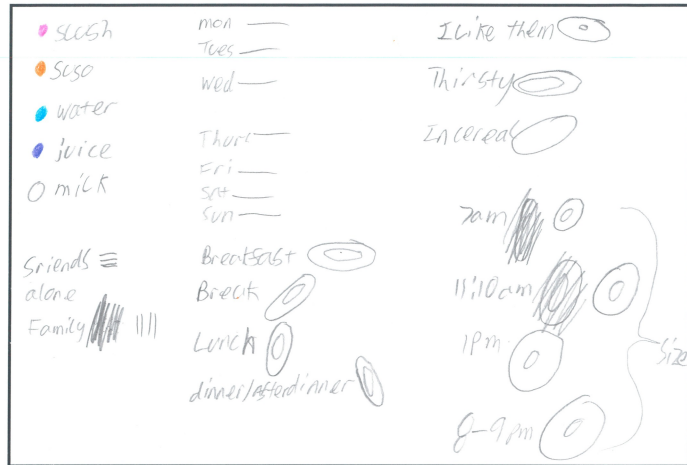 slush
Suso
water
juice
milk
Sriends
alone
Family
mon
Tues
wed
Thurs
Fri
sat
sun
Breakfast
Break
Lunch
dinner/Afterdinner
I Like them
Thirsty
In cereal
7am
11:10am
1pm
8-9pm
Size